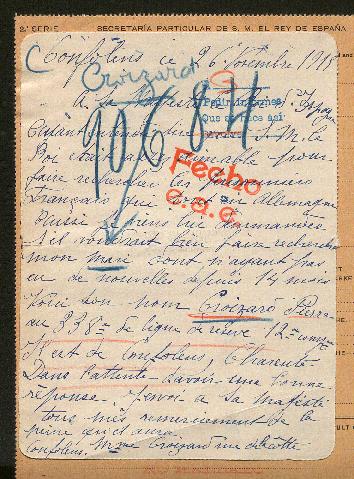 2.ª SERIE SECRETARÍA PARTICULAR DE S. M. EL REY DE ESPAÑA
Confolens ce 26 Novembre 1915
Croizard
A Sa Majesté Roi d'Espagne
Pedir
Que se hace así
Ayant que S. M. le
Roi était aimable pour
faire rechercher les prisonniers
Français qui sont en Allemagne
je viens lui demander
s'il voudrait bien faire rechercher
mon mari dont n'ayant pas
eu de nouvelles depuis 14 mois
Voici son nom Croizard Pierre
au 338e de ligne de réserve 12e comp
de Confolens, Charente
Dans l'attente d'avoir une bonne
réponse. J'envoie à Sa Majesté
tous mes remerciement de la
peine qu'il aura
Confolens. Mme Croizard
1068-1
Fecho
e.a.c